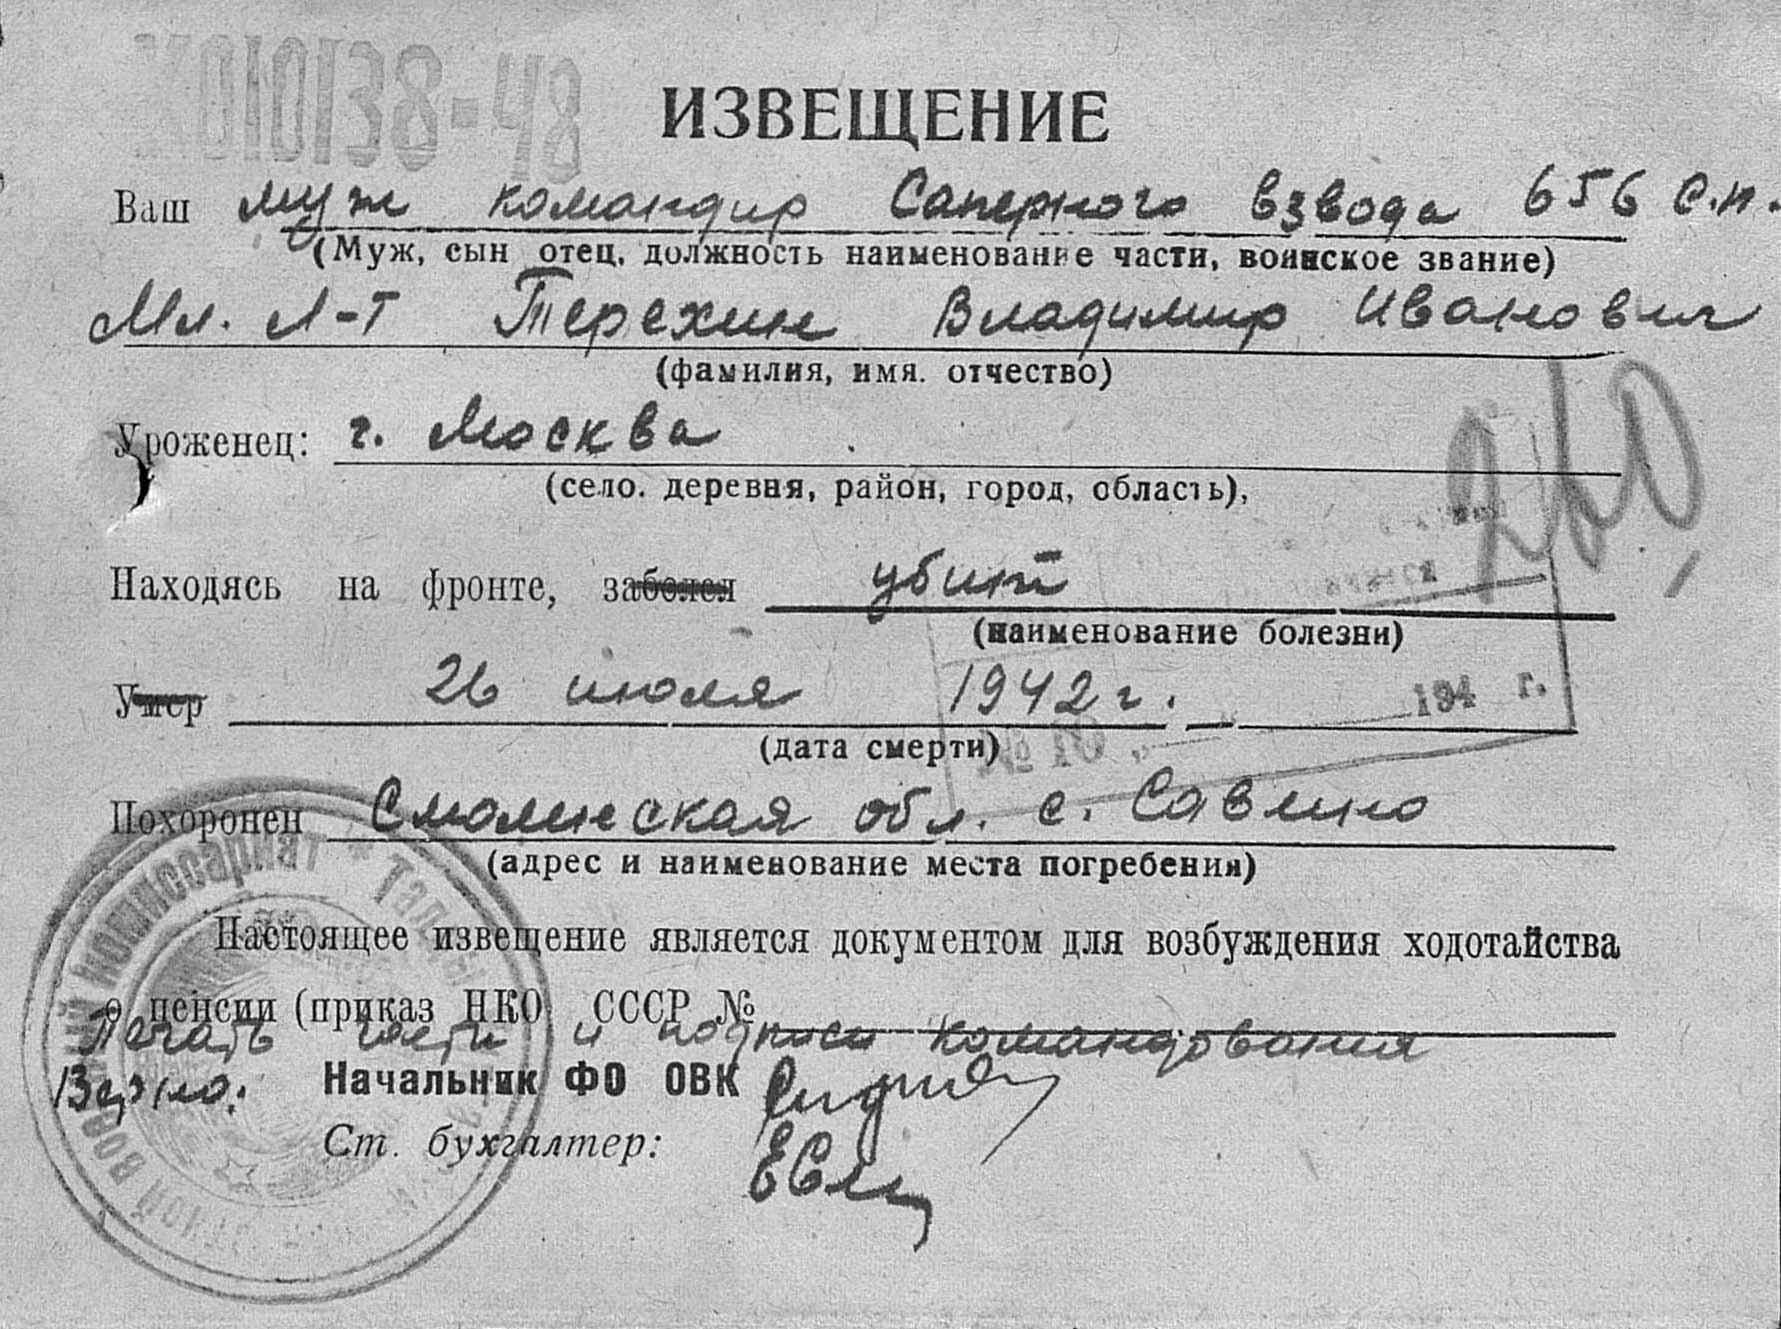 010138-48
ИЗВЕЩЕНИЕ
Ваш муж командир Саперного взвода 656 с.п.
(Муж, сын отец, должность наименование части, воинское звание)
Мл. л-т Терехин Владимир Иванович
(фамилия, имя. отчество)
Уроженец: г. Москва
(село. деревня, район, город, область),
Находясь на фронте, заболел убит
(наименование болезни)
Умер 26 июля 1942 г. 194 г.
(дата смерти)
Похоронен Смоленская обл. с. Савино
(адрес и наименование места погребения)
Настоящее извещение является документом для возбуждения ходотайства
о пенсии (приказ НКО СССР №
Печать части и подписи командования
Верно: Начальник ФО ОВК
Ст. бухгалтер:
комиссариат